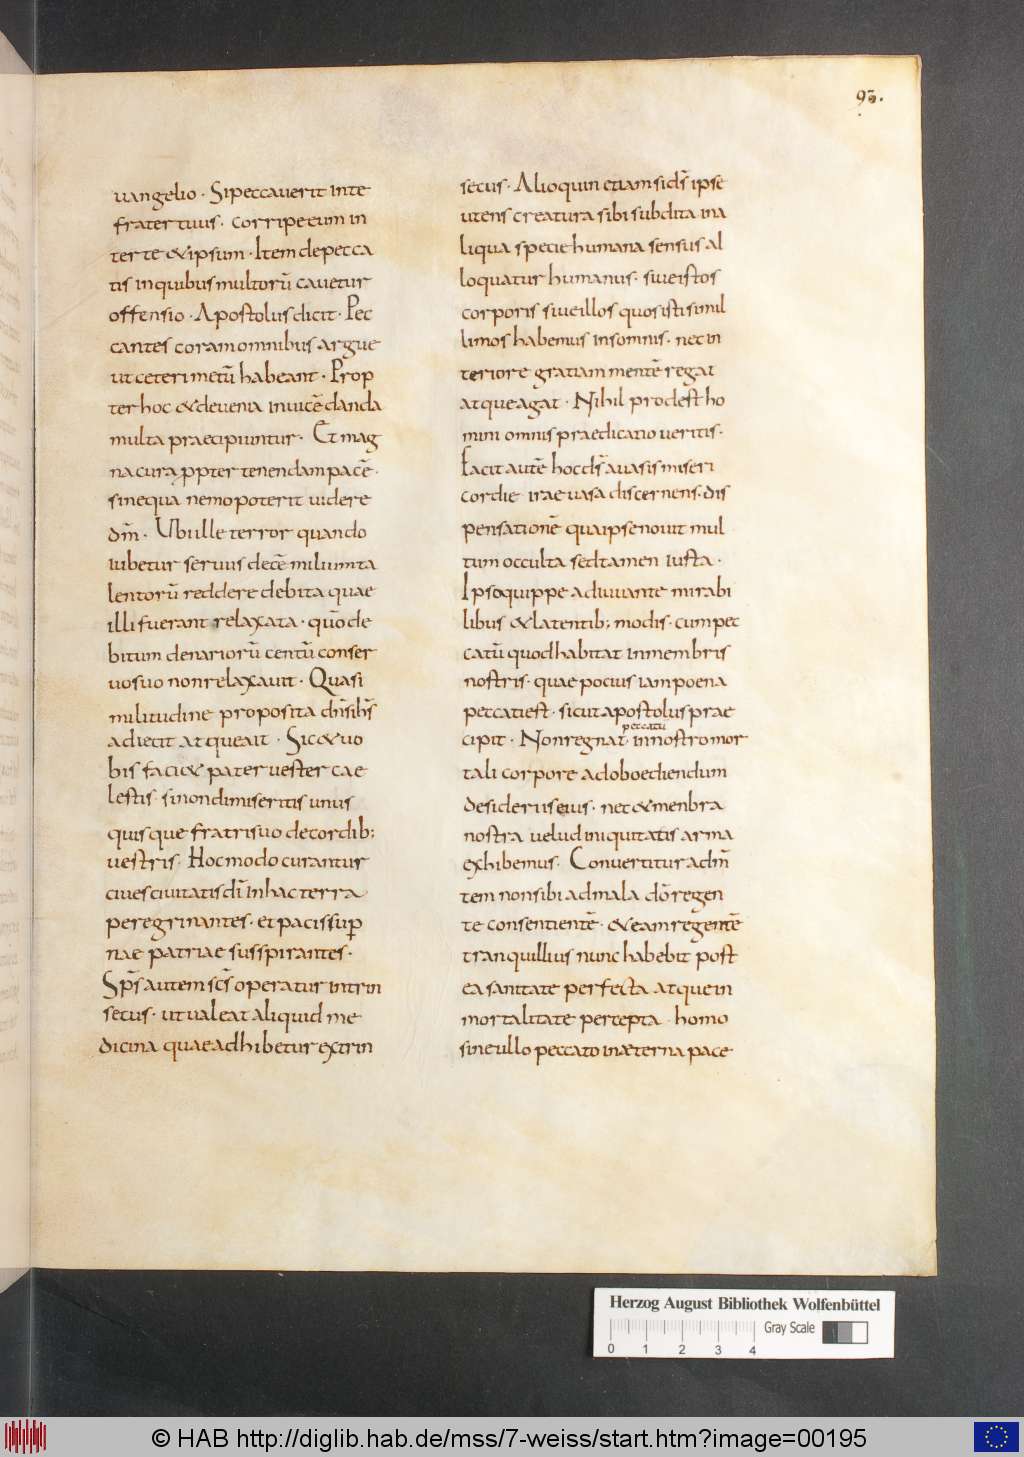 93.
uangelio · Si peccauerit in te
frater tuus · corripe eum in
ter te & ipsum · Item de pecca
tis in quibus multorū cauetur
offensio · Apostolus dicit · Pec
cantes coram omnibus argue
ut ceteri metū habeant · Prop
ter hoc & de uenia inuicē danda
multa praecipiuntur · Et mag
na cura ppter tenendam pacē ·
sine qua nemo poterit uidere
dm̄ · Ubi ille terror quando
iubetur seruus decē milium ta
lentorū reddere debita quae
illi fuerant relaxata · quō de
bitum denariorū centū conser
uo suo non relaxauit · Quasi
militudine proposita dn̄s ih̄s
adiecit atque ait · Sic & uo
bis faci& pater uester cae
lestis · si non dimiseritis unus
quisque fratri suo de cordib;
uestris · Hoc modo curantur
ciues ciuitatis dī in hac terra
peregrinantes · et pacis sup
nae patriae susspirantes ·
Sp̄s autem sc̄s operatur intrin
secus · ut ualeat aliquid me
dicina quae adhibetur extrin
secus · Alioquin etiam si ds̄ ipse
utens creatura sibi subdita in a
liqua specie humana sensus al
loquatur humanus · siue istos
corporis siue illos quos isti simil
limos habemus in somnis · nec in
teriore gratiam mentē regat
atque agat · Nihil prodest ho
mini omnis praedicatio ueritis ·
Facit autē hoc ds̄ a uasis miseri
cordie irae uasa discernens · dis
pensationē qua ipse nouit mul
tum occulta sed tamen iusta ·
Ipso quippe adiuuante mirabi
libus & latentib; modis · cum pec
catū quod habitat in membris
nostris · quae pocius iam poena
peccati est · sicut apostolus prae
peccatū
cipit · Non regnat · in nostro mor
tali corpore ad oboediendum
desideriis eius · nec & menbra
nostra uelud iniquitatis arma
exhibemus · Conuertitur ad m̄
tem non sibi ad mala dō regen
te consentientē · & eam regentē
tranquillius nunc habebit post
ea sanitate perfecta atque in
mortalitate percepta · homo
sine ullo peccato in æterna pace
Herzog August Bibliothek Wolfenbüttel
Gray Scale
0 1 2 3 4
© HAB http://diglib.hab.de/mss/7-weiss/start.htm?image=00195